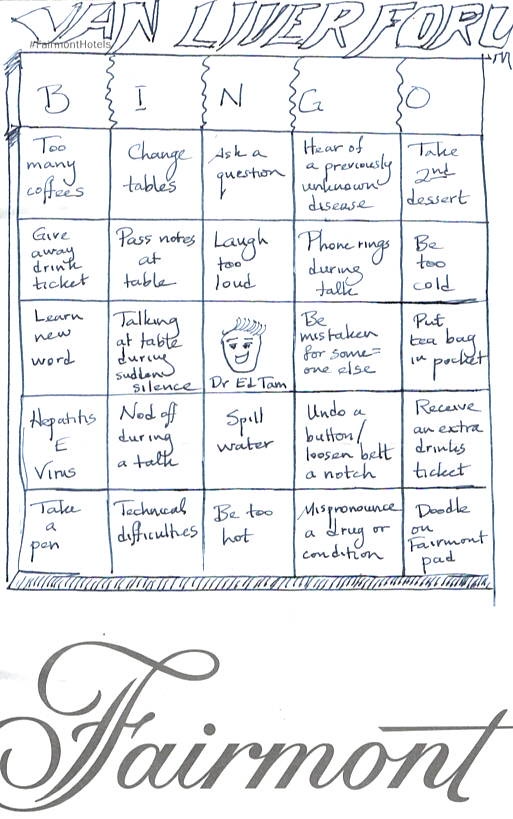 VAN LIVER FORU
#FairmontHotels
B I N G O
Too
many
coffees
Change
tables
Ask a
question
Hear of
a previously
unknown
disease
Take
2nd
dessert
Give
away
drink
ticket
Pass notes
at
table
Laugh
too
loud
Phone rings
during
talk
Be
too
cold
Learn
new
word
Talking
at table
during
sudden
silence
Dr El Tam
Be
mistaken
for some=
one else
Put
tea bag
in pocket
Hepatitis
E
Virus
Nod off
during
a talk
Spill
water
Undo a
button/
loosen belt
a notch
Receive
an extra
drinks
ticket
Take
a
pen
Technical
difficulties
Be too
hot
Mispronounce
a drug or
condition
Doodle
on
Fairmont
pad
Fairmont